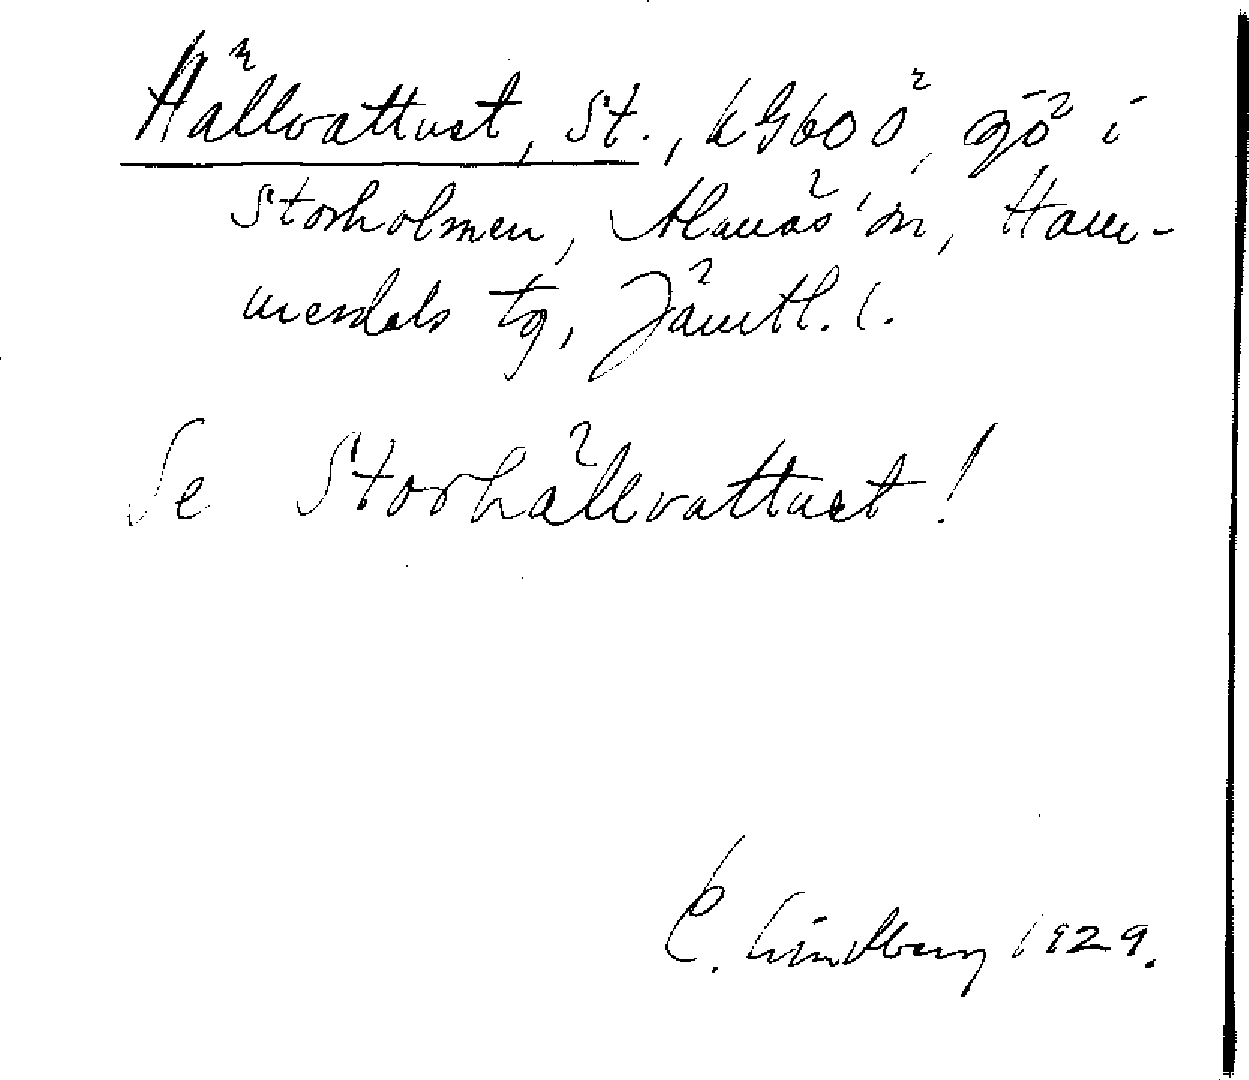 Hällvattnet, St., kG600, sjö i
Storholmen, Alanäs sn, Ham-
merdals tg, Jämtl. l.
Se Storhällvattnet!
E. Lindberg 1929.